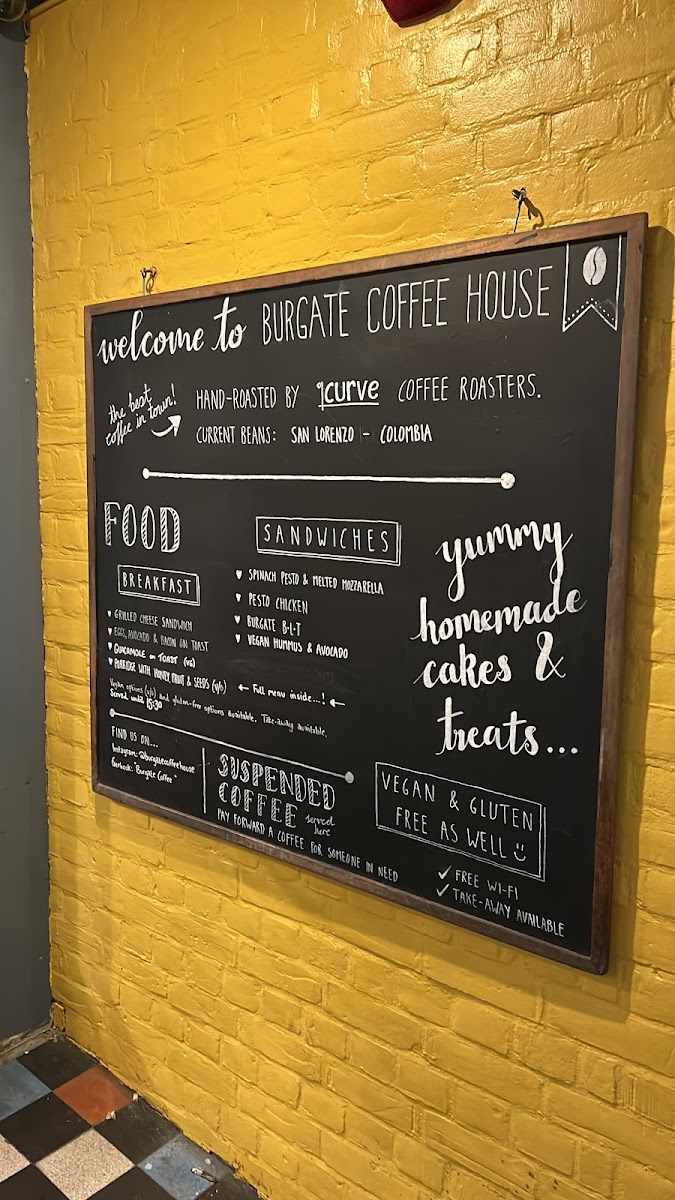 welcome to BURGATE COFFEE HOUSE
the best
coffee in town!
HAND-ROASTED BY curve COFFEE ROASTERS.
CURRENT BEANS: SAN LORENZO - COLOMBIA
FOOD
BREAKFAST
GRILLED CHEESE SANDWICH
EGGS, AVOCADO & BACON ON TOAST
GUACAMOLE on TOAST (VG)
PORRIDGE WITH HONEY, FRUIT & SEEDS (V/G)
SANDWICHES
SPINACH PESTO & MELTED MOZZARELLA
PESTO CHICKEN
BURGATE B-L-T
VEGAN HUMMUS & AVOCADO
← Full menu inside...! ←
Vegan options (VG) and gluten-free options available. Take-away available.
Served until 15:30
yummy
homemade
cakes &
treats...
FIND US ON...
Instagram: @burgatecoffeehouse
Facebook: "Burgate Coffee"
SUSPENDED
COFFEE served
here
PAY FORWARD A COFFEE FOR SOMEONE IN NEED
VEGAN & GLUTEN
FREE AS WELL
✓ FREE WI-FI
✓ TAKE-AWAY AVAILABLE